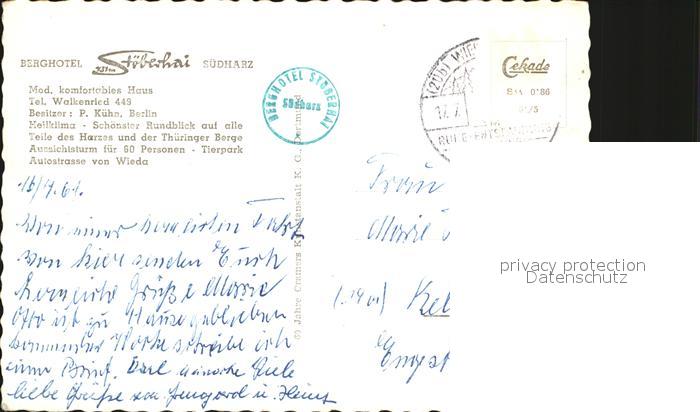 BERGHOTEL Stöberhai SÜDHARZ
Mod. komfortables Haus
Tel. Walkenried 449
Besitzer: P. Kühn, Berlin
Heilklima - Schönster Rundblick auf alle
Teile des Harzes und der Thüringer Berge
Aussichtsturm für 60 Personen - Tierpark
Autostrasse von Wieda
BERGHOTEL STÖBERHAI
Südharz
(20b) WIE
17.7.
Cekade
60 Jahre Cramers K. G., Dortmund
Von einer herrlichen Fahrt
von hier senden Euch
herzliche Grüße Marie
Otto ist zu Hause geblieben
kommende Woche schreibe ich
einen Brief. Viele
liebe Grüße von u. Heinz
Frau
Marie
Kel
privacy protection
Datenschutz